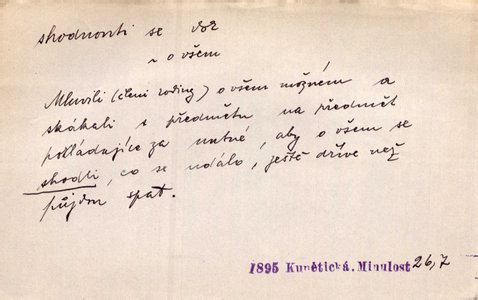 shodnouti se več
~ o všem
Mluvili (členi rodiny) o všem možném a
skákali s předmětu na předmět
pokládajíce za nutné, aby o všem se
shodli, co se událo, ještě dříve než
půjdou spat.
1895 Kunětická. Minulost 26,7